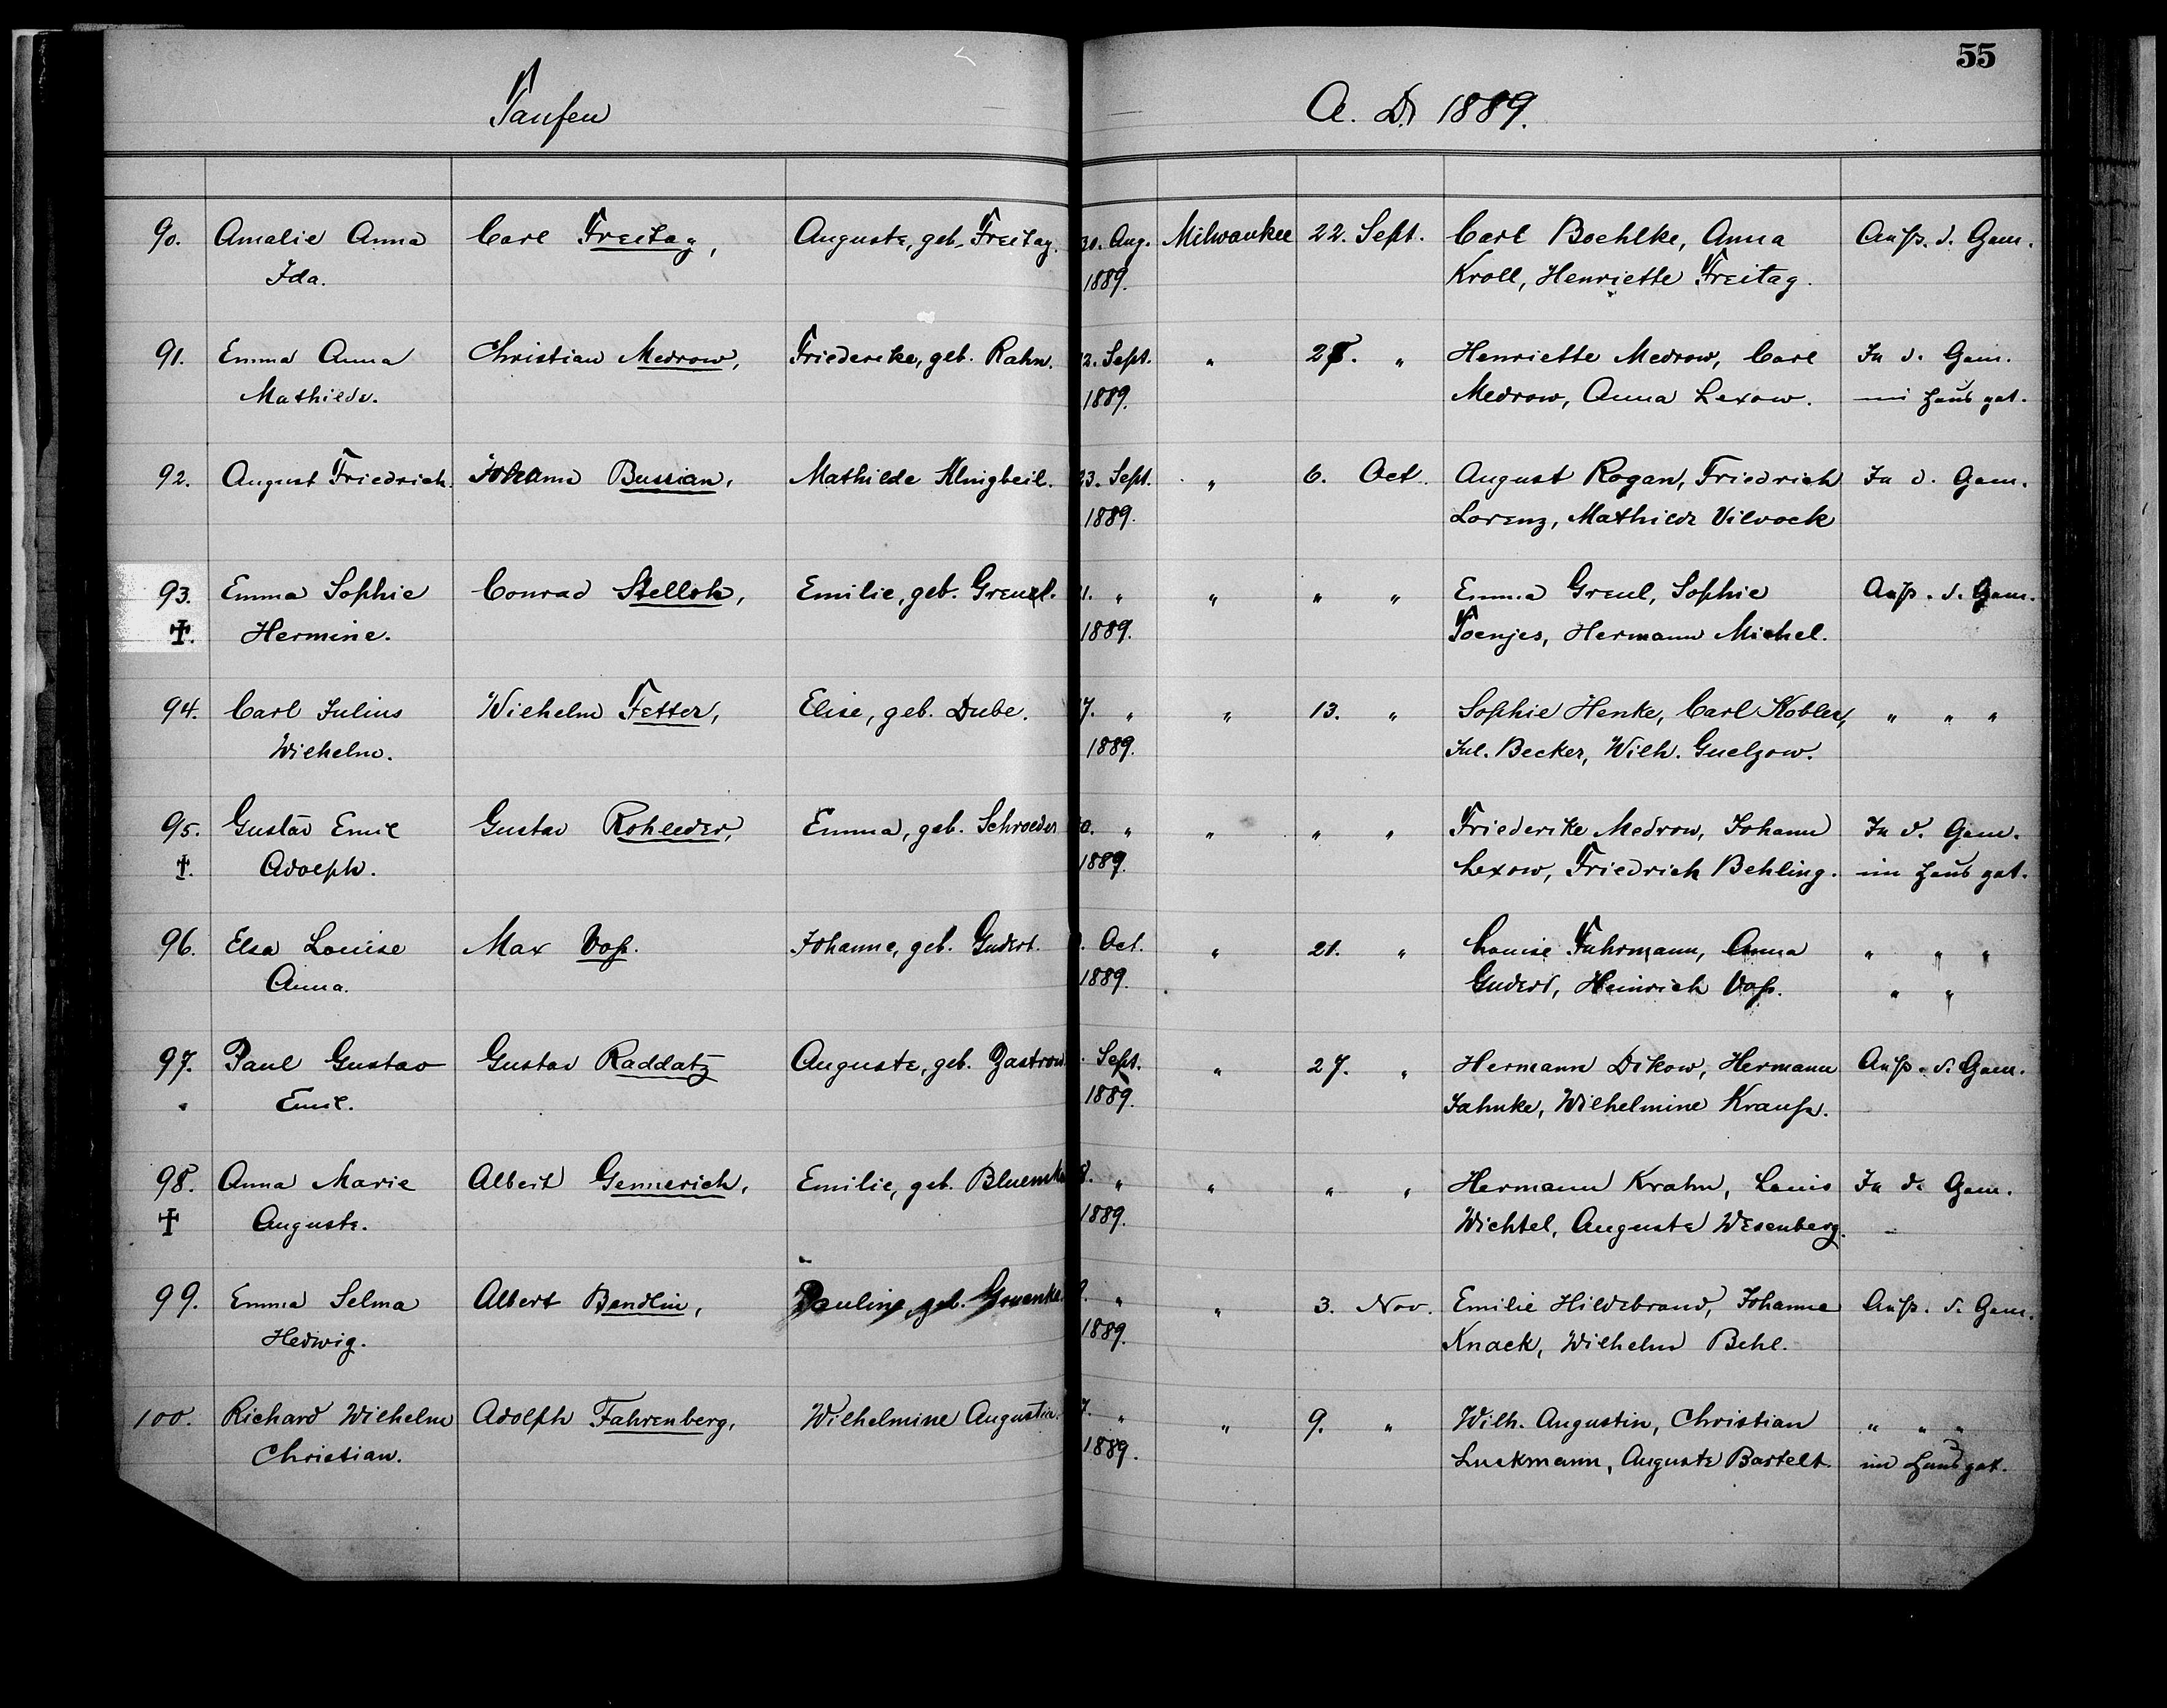 55
Taufen A. D. 1889.
90. Amalie Anna Carl Freitag, Auguste, geb. Freitag. 30. Aug. Milwaukee 22. Sept. Carl Boehlke, Anna Auß. d. Gem.
Ida. 1889. Kroll, Henriette Freitag.
91. Emma Anna Christian Medrow, Friederike, geb. Rahn. 2. Sept. " " Henriette Medrow, Carl In d. Gem.
Mathilde. 1889. Medrow, Anna Lexow. im Haus get.
92. August Friedrich. Johann Bussian, Mathilde Klingbeil. 23. Sept. " 6. Oct. August Rogan, Friedrich In d. Gem.
1889. Lorenz, Mathilde Vilvock
93. Emma Sophie Conrad Stelloh, Emilie, geb. Greuel. 1. " " " " Emma Greul, Sophie Auß. d. Gem.
✝. Hermine. 1889. Toenjes, Hermann Michel.
94. Carl Julius Wilhelm Fetter, Elise, geb. Dube. 7. " " 13. " Sophie Henke, Carl Kobler, " " "
Wilhelm. 1889. Jul. Becker, Wilh. Guelzow.
95. Gustav Emil Gustav Rohleder, Emma, geb. Schroeder 0. " " " " Friederike Medrow, Johann In d. Gem.
✝. Adolph. 1889. Lexow, Friedrich Behling. im Haus get.
96. Elsa Louise Max Voß. Johanne, geb. Gudert. Oct. " 21. " Louise Fuhrmann, Anna " " "
Anna. 1889. Gudert, Heinrich Voß. " "
97. Paul Gustav Gustav Raddatz Auguste, geb. Zastrow Sept. " 27. " Hermann Dikow, Hermann Auß. d. Gem.
Emil. 1889. Jahnke, Wilhelmine Krauße.
98. Anna Marie Albert Gennerich, Emilie, geb. Bluemke 8. " " " " Hermann Krahn, Louis In d. Gem.
✝ Auguste. 1889. Wichtel, Auguste Wesenberg.
99. Emma Selma Albert Bendlin, Pauline, geb. " " 3. Nov. Emilie Hildebrand, Johanne Auß. d. Gem.
Hedwig. 1889. Knack, Wilhelm Behl.
100. Richard Wilhelm Adolph Fahrenberg, Wilhelmine Augustin. 7. " " 9. " Wilh. Augustin, Christian " " "
Christian. 1889. Luckmann, Auguste Bartelt. im Haus get.